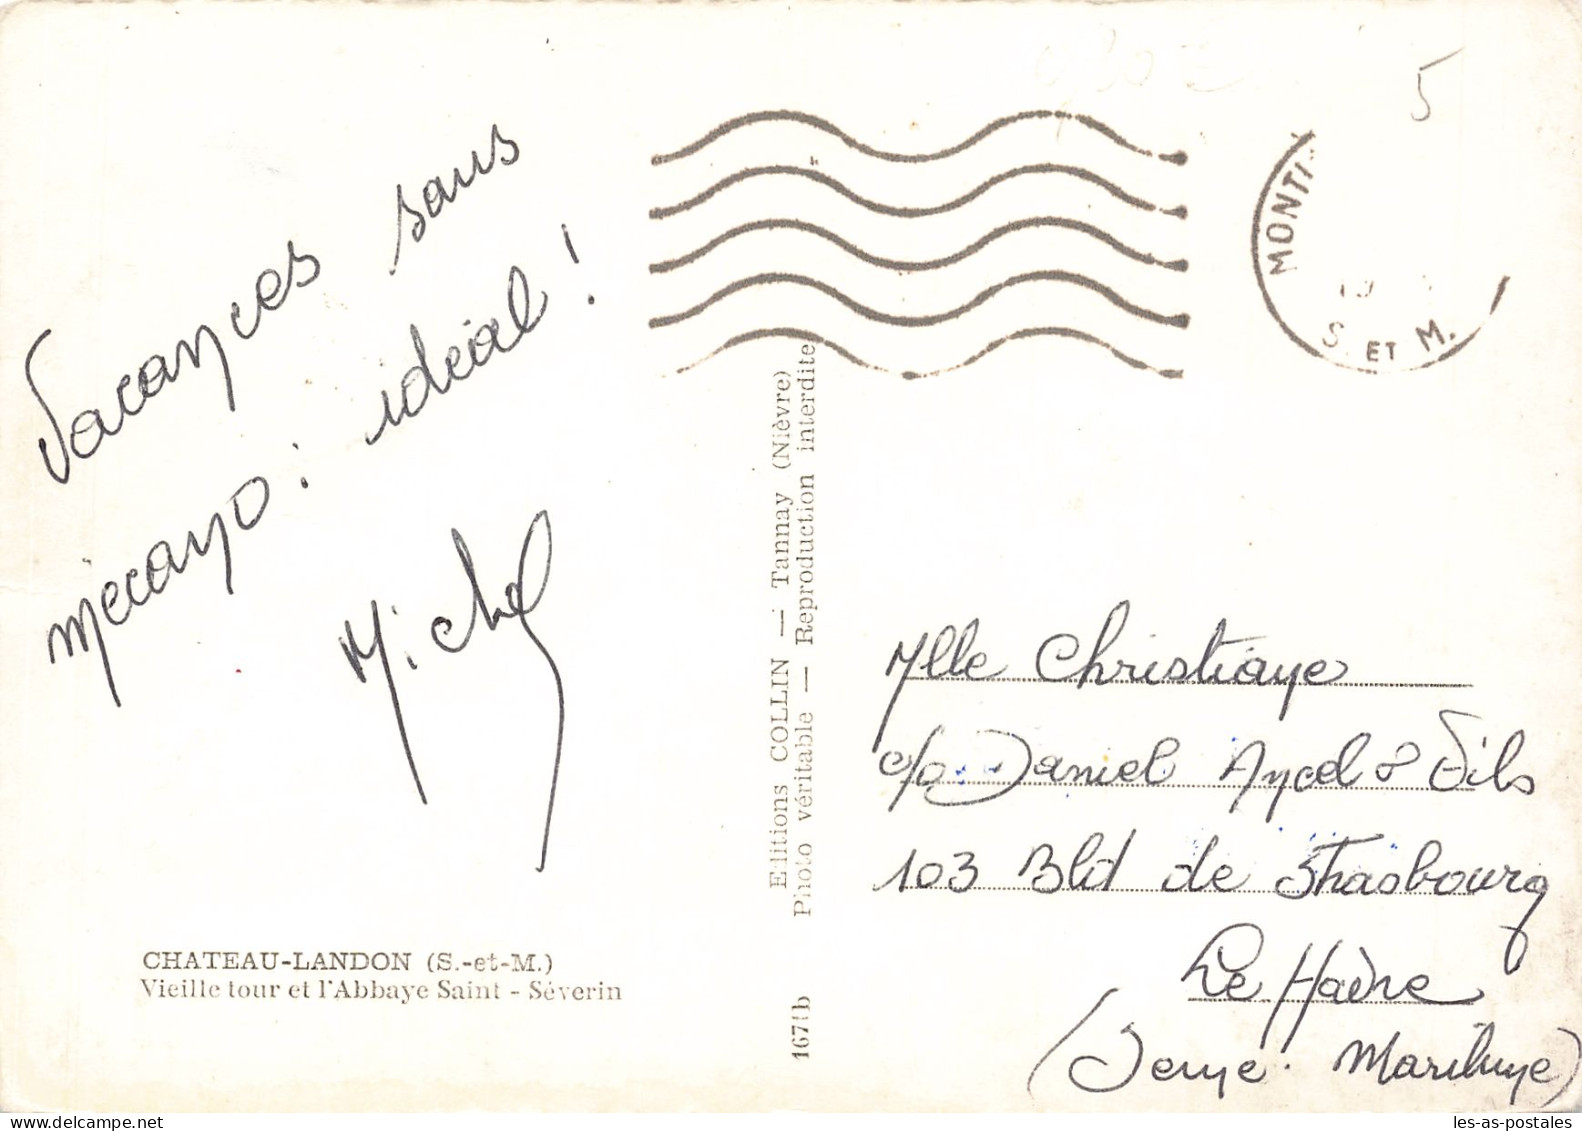 Vacances sans
mecano : idéal !
Michel
CHATEAU-LANDON (S.-et-M.)
Vieille tour et l'Abbaye Saint - Séverin
Editions COLLIN — Tannay (Nièvre)
Photo véritable — Reproduction interdite
5
MONTI
19
S. ET M.
Mlle Christiane
c/o Daniel Ancel & Fils
103 Bld de Strasbourg
Le Havre
(Seine. Maritime)
les-as-postales